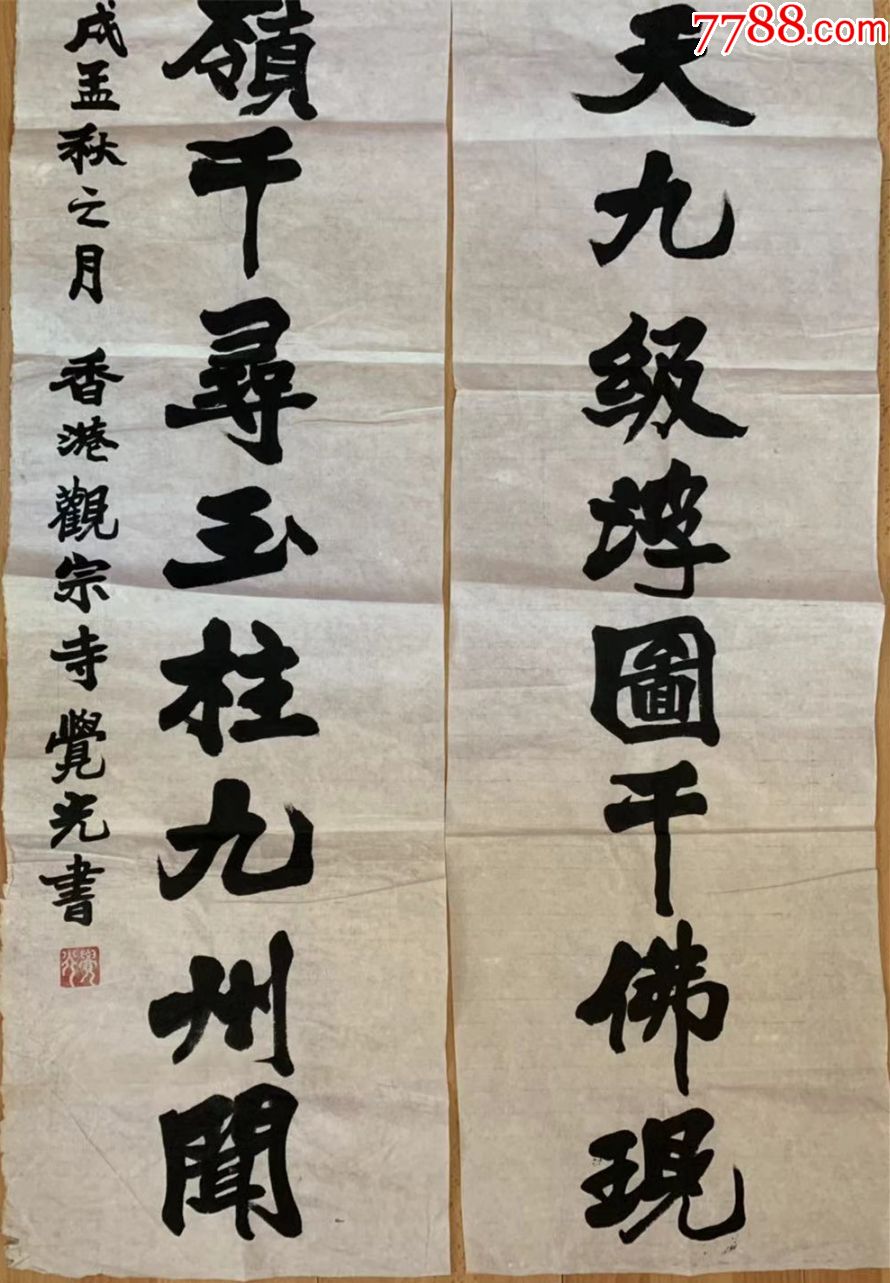 7788.com
天九级浮圖千佛現
嶺千尋玉柱九州聞
戌孟秋之月 香港觀宗寺覺光書
覺光